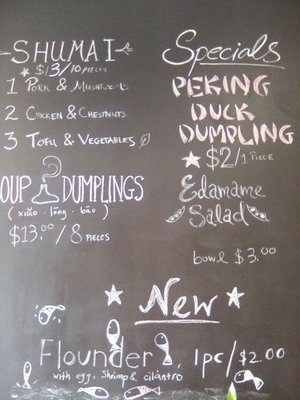 SHUMAI
$13/10 PIECES
1 PORK & MUSHROOM
2 CHICKEN & CHESTNUTS
3 TOFU & VEGETABLES
OUP DUMPLINGS
(xiǎo · lóng · bāo)
$13.00/8 PIECES
Specials
PEKING
DUCK
DUMPLING
$2/1 PIECE
Edamame
Salad
bowl $3.00
New
Flounder 1pc/$2.00
with egg, Shrimp & cilantro